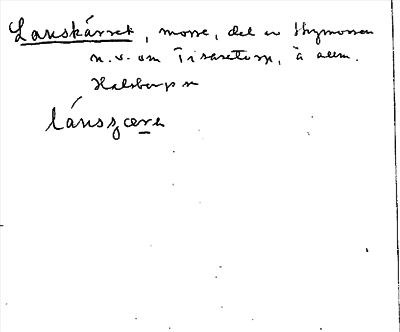 Lanskärret, mosse, del av Skymossen
n.v. om Tisaretorp, å allm.
Halsbergs sn
lánsʒœrə